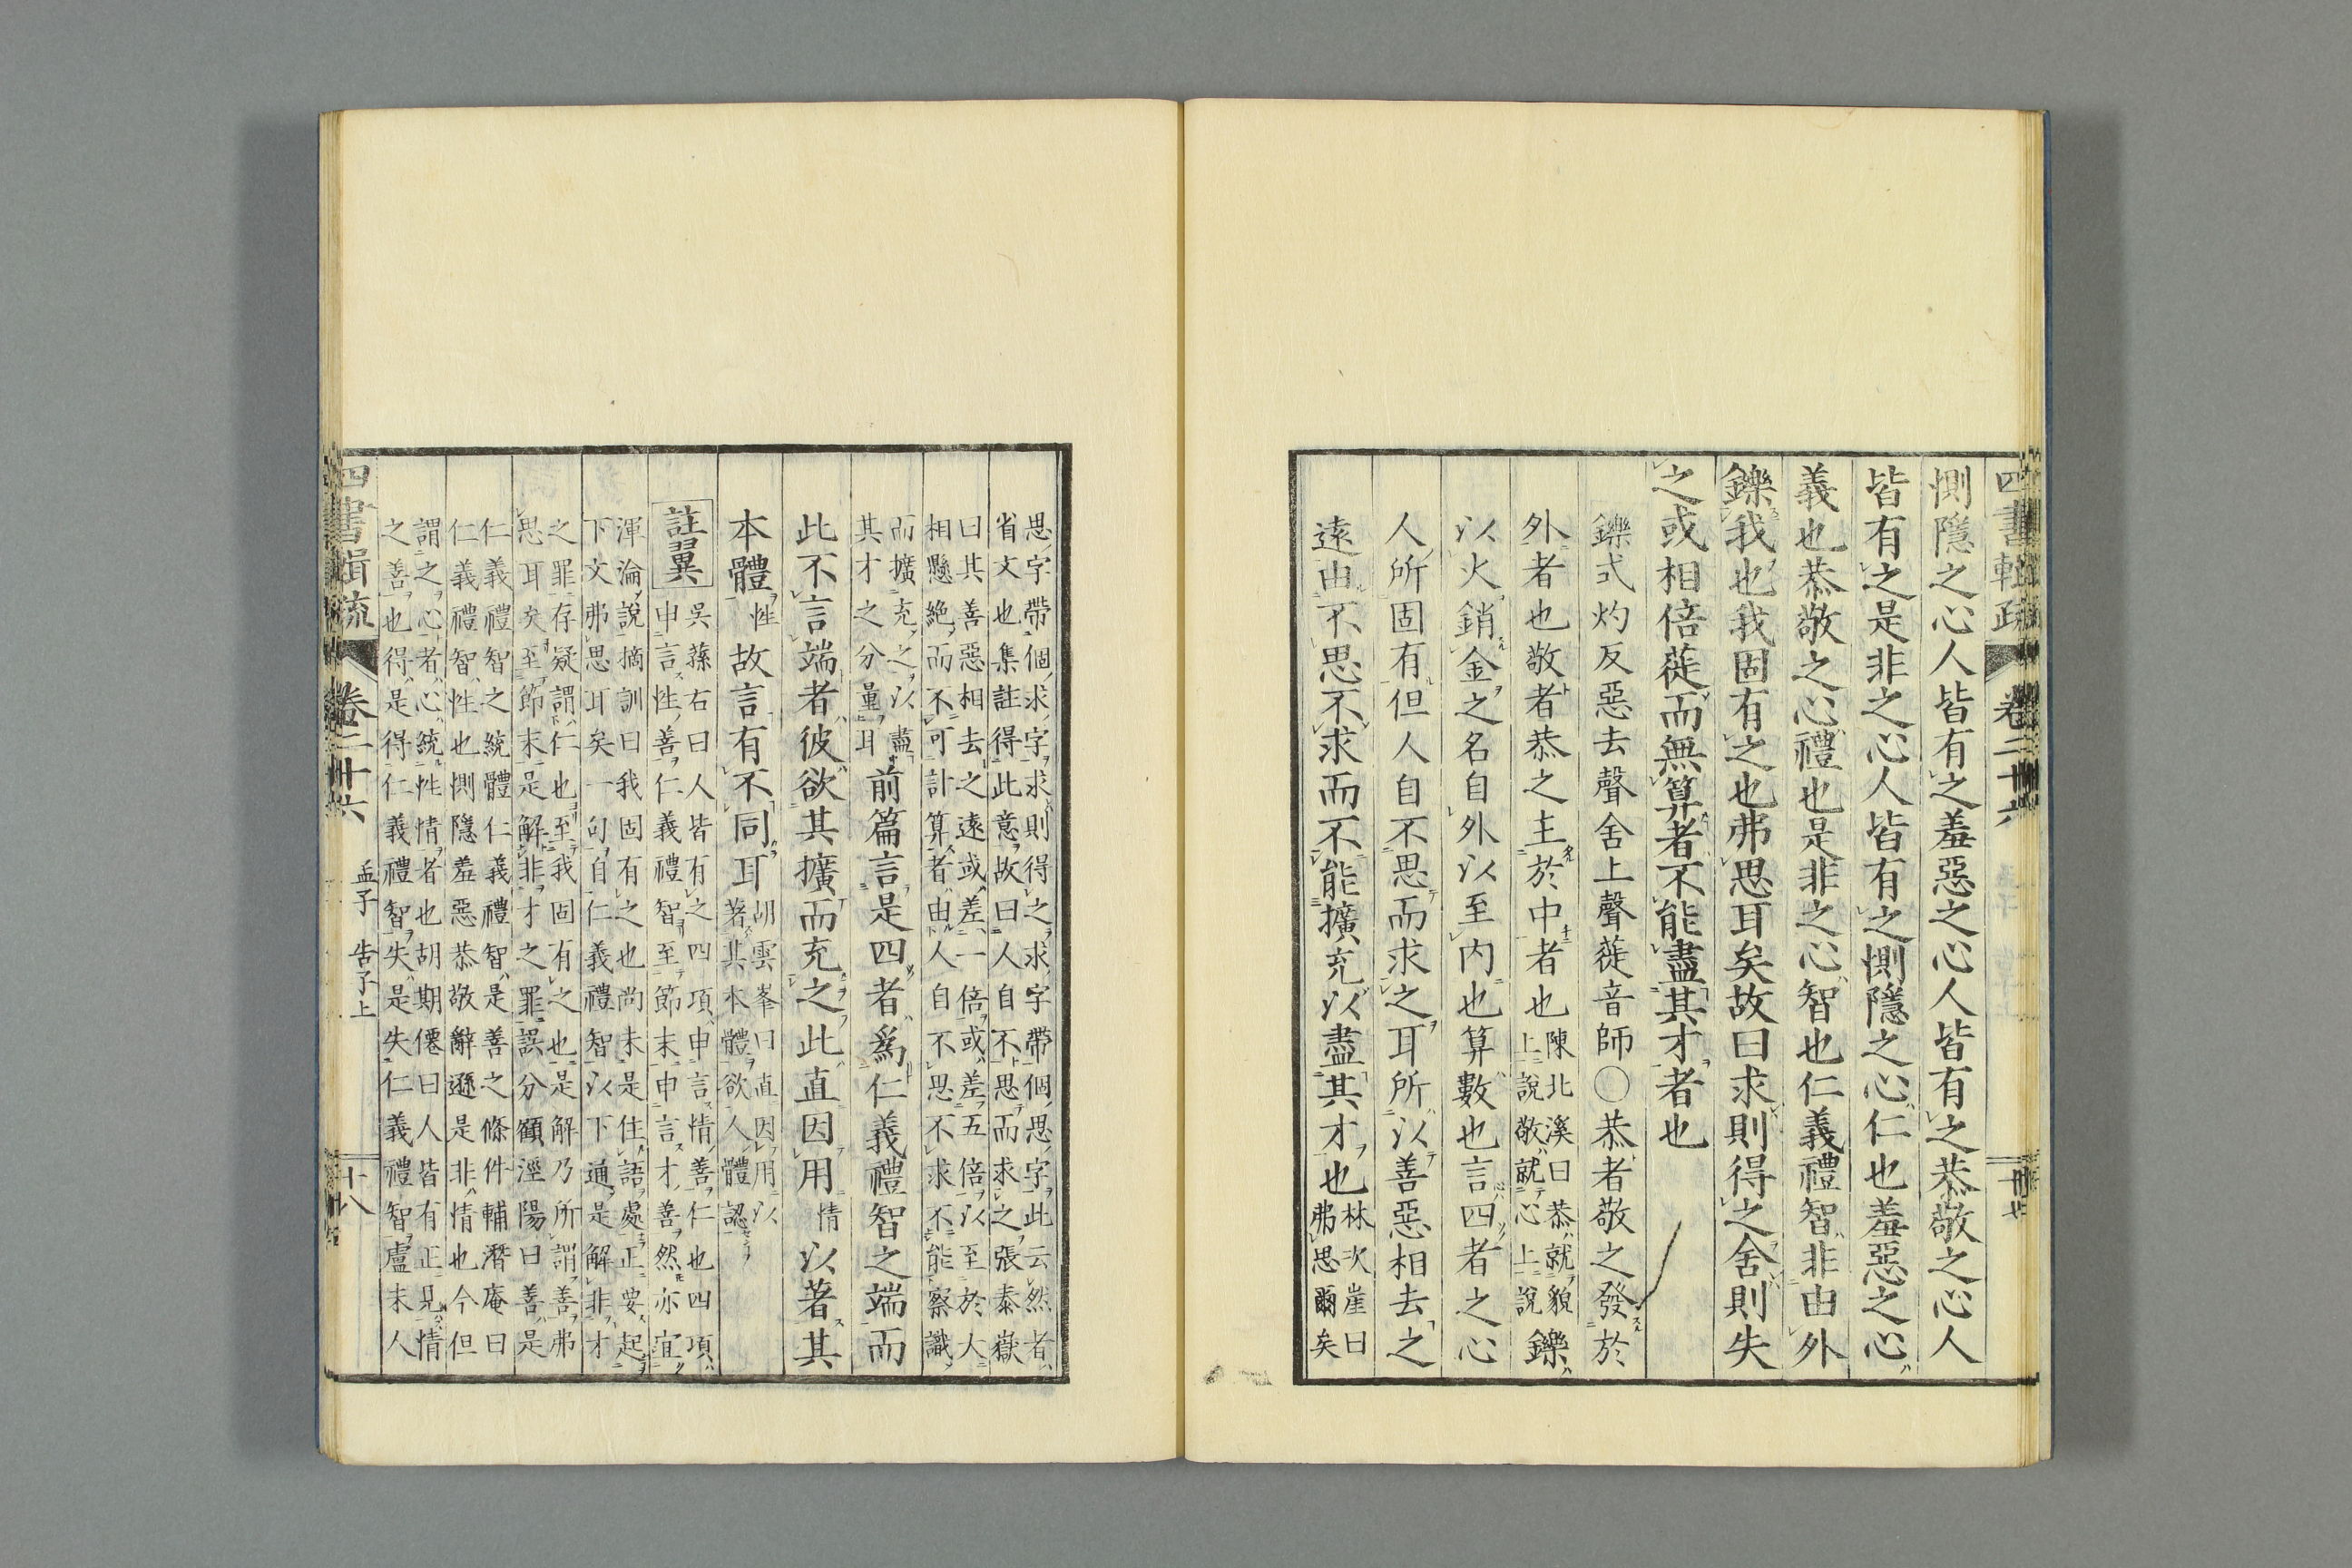 四書輯疏 卷二十六
惻隱之心人皆有之羞惡之心人皆有之恭敬之心人
皆有之是非之心人皆有之惻隱之心仁也羞惡之心
義也恭敬之心禮也是非之心智也仁義禮智非由外
鑠我也我固有之也弗思耳矣故曰求則得之舍則失
之或相倍蓰而無算者不能盡其才者也
鑠式灼反惡去聲舍上聲蓰音師○恭者敬之發於
外者也敬者恭之主於中者也陳北溪曰恭就貌上說敬就心上說鑠
以火銷金之名自外以至内也算數也言四者之心
人所固有但人自不思而求之耳所以善惡相去之
遠由不思不求而不能擴充以盡其才也林次崖曰弗思爾矣
思字帶個求字求則得之求字帶個思字此云然者
省文也集註得此意故曰人自不思而求之張泰嶽
曰其善惡相去之遠或差一倍或差五倍以至於大
相懸絶而不可計算者由人自不思不求不能察識
而擴充之以盡
其才之分量耳前篇言是四者爲仁義禮智之端而
此不言端者彼欲其擴而充之此直因用情以著其
本體性故言有不同耳胡雲峯曰直因用以著其本體欲人體認
註翼
吳蓀右曰人皆有之四項申言情善仁也四項
申言性善仁義禮智至節末申言才善然亦宜
渾淪說摘訓曰我固有之也尚未是住語處正要起
下文弗思耳矣一句自仁義禮智以下通是解非才
之罪存疑謂仁也至我固有之也是解乃所謂善弗
思耳矣至節末是解非才之罪誤分顧涇陽曰善是
仁義禮智之統體仁義禮智是善之條件輔潛庵曰
仁義禮智性也惻隱羞惡恭敬辭遜是非情也今但
謂之心者心統性情者也胡期僊曰人皆有正見情
之善也得是得仁義禮智失是失仁義禮智盧未人
四書輯疏 卷二十六 孟子 告子上 十八